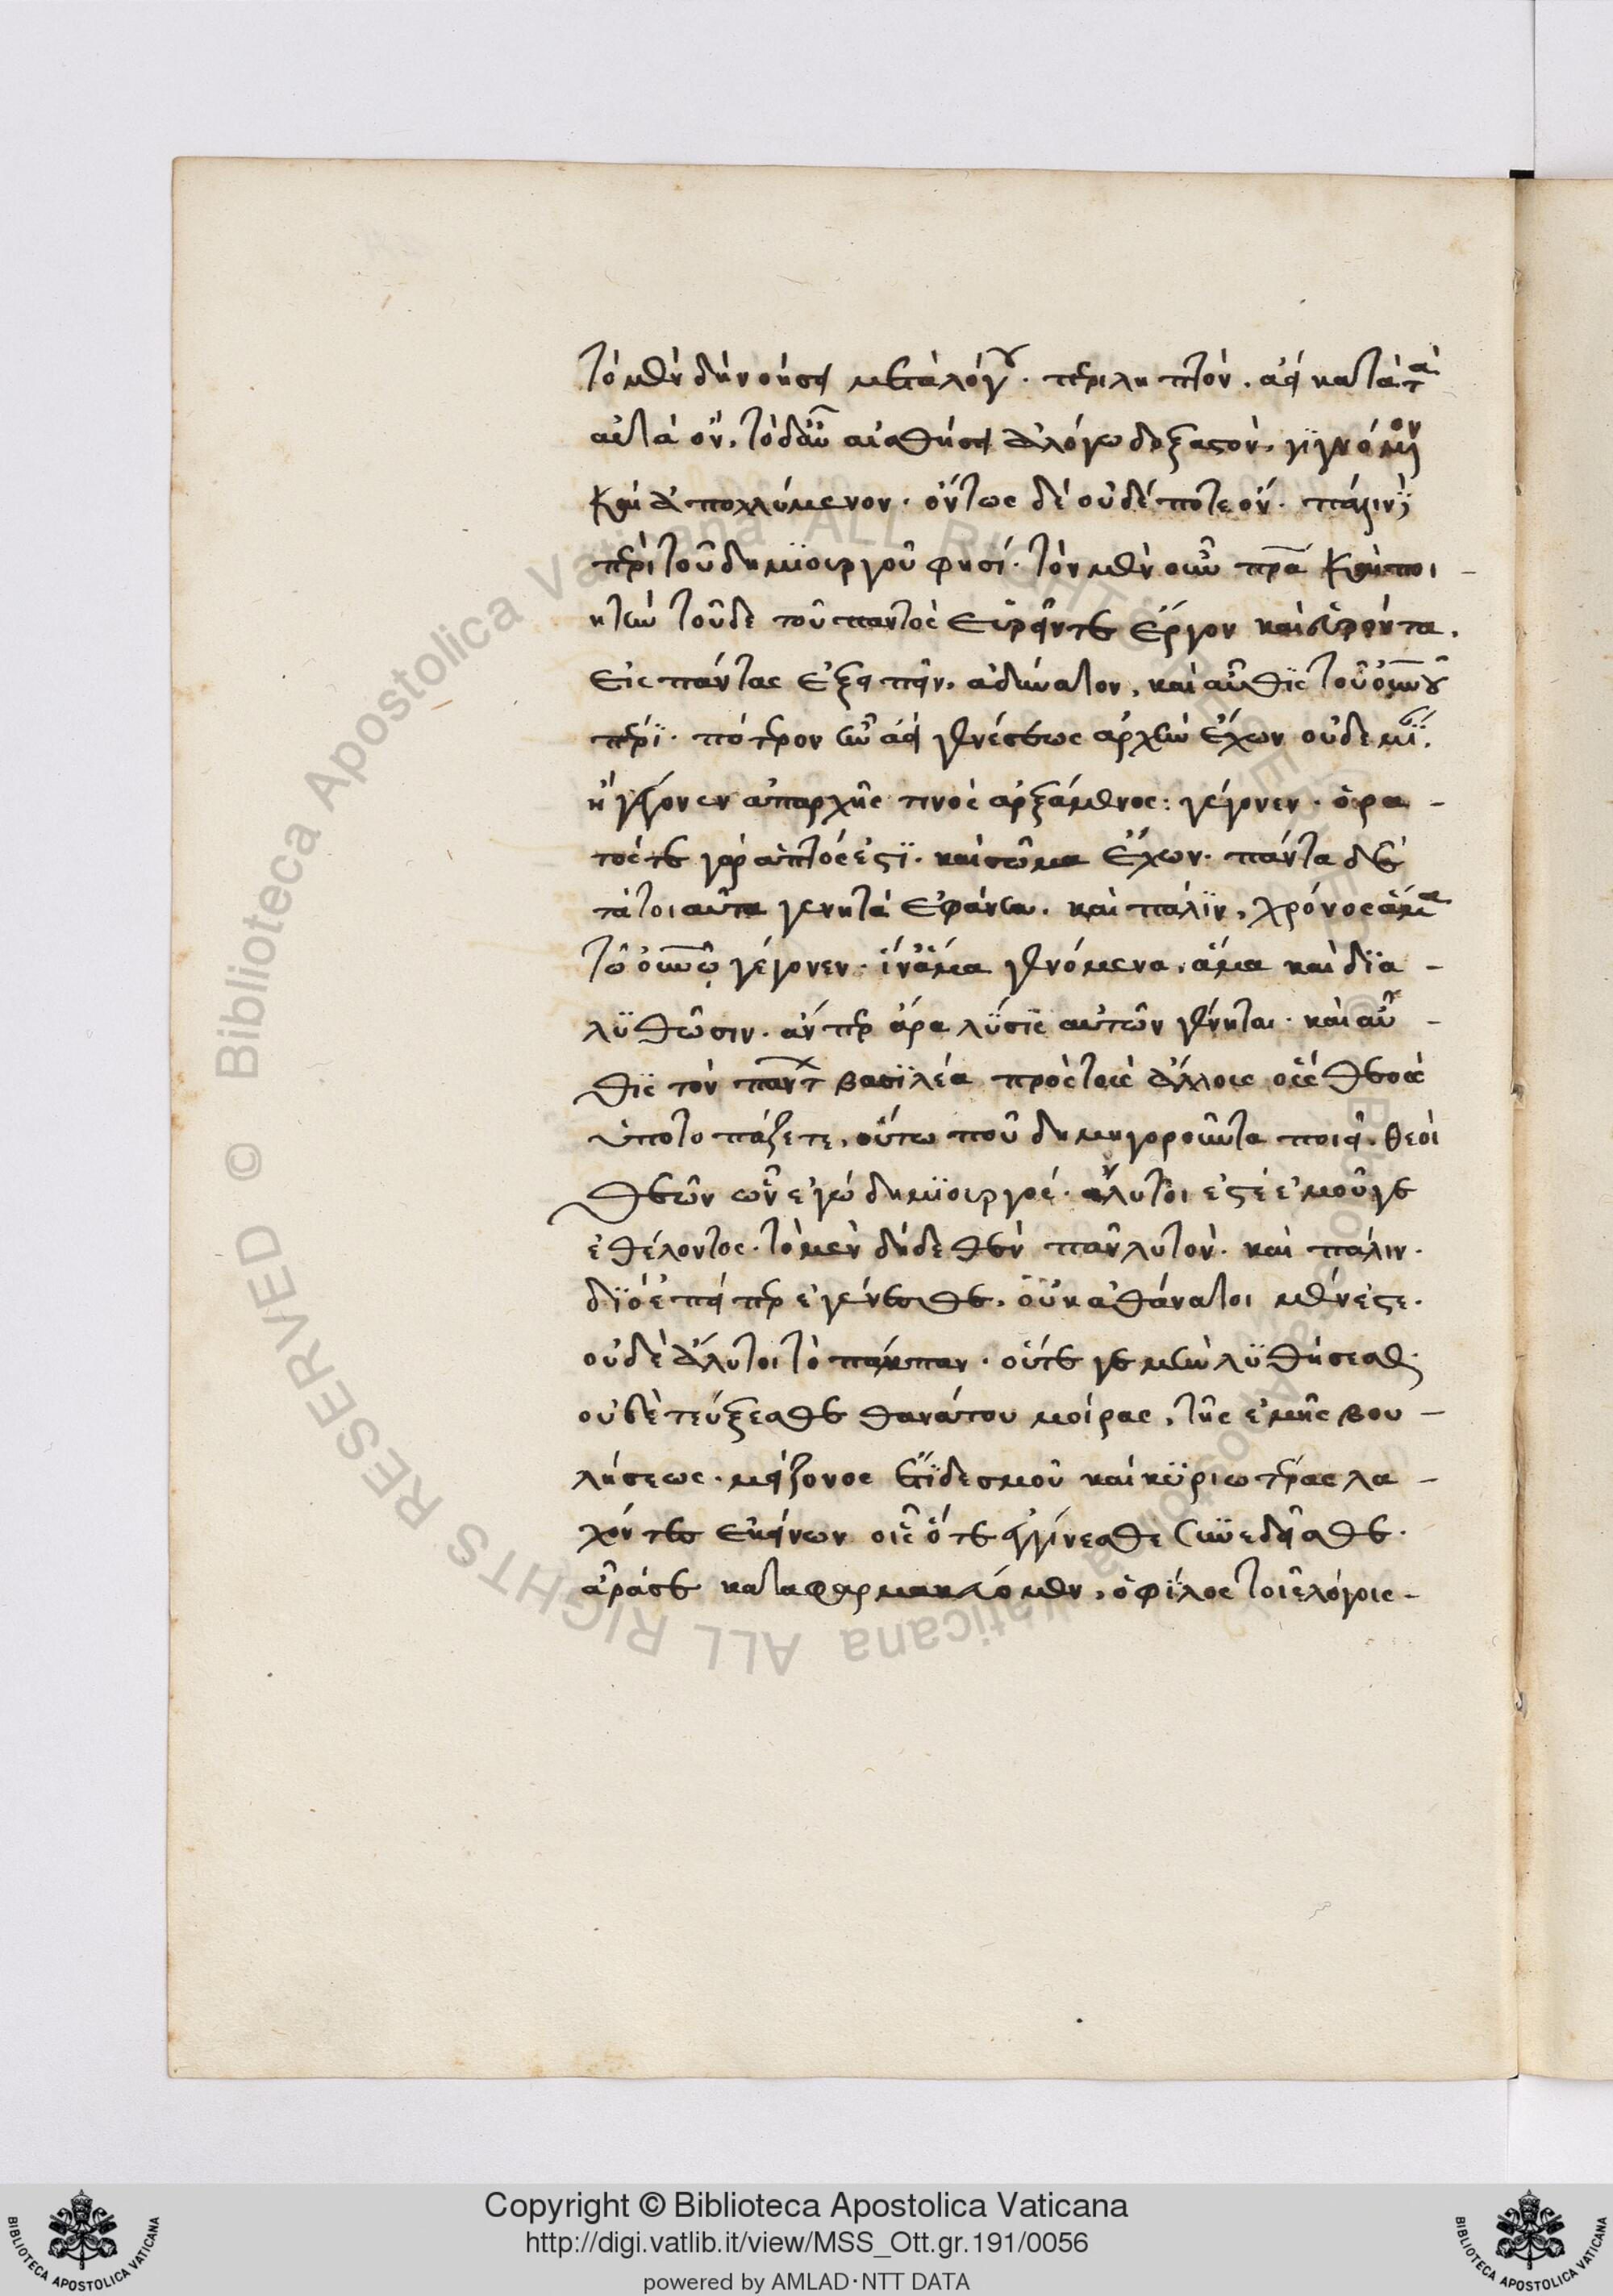 τὸ μὲν δὴ νοήσει μετὰ λόγου· περιληπτὸν. ἀεὶ κατὰ τὰ
αὐτὰ ὄν. τὸ δ' αὖ αἰσθήσει ἀλόγω δοξαστὸν. γϊγνόμενον
καὶ ἀπολλύμενον· ὄντως δὲ οὐδέποτε ὄν· πάλιν
περὶ τοῦ δημϊουργοῦ φησί· τὸν μὲν οὖν πρα καὶ ποι -
ητὴν τοῦδε τοῦ παντὸς εὑρεῖν τε ἔργον καὶ εὑρόντα.
εἰς πάντας ἐξειπεῖν. ἀδύνατον. καὶ αὖθϊς τοῦ οὐνου
περὶ· πότερον ἦν ἀεὶ γενέσεως ἀρχὴν ἔχων οὐδεμϊαν.
ἢ γέγονεν ἀπαρχῆς τινὸς ἀρξάμενος: γέγονεν· ὁρα -
τός τε γὰρ ἁπτός ἐστϊ· καὶ σῶμα ἔχων· πάντα δὲ
τὰ τοιαῦτα γενητὰ ἐφάνη. καὶ πάλϊν, χρόνος ἅμα
τῶ οὐνῶ γέγονεν· ἵν' ἅμα γενόμενα. ἅμα καὶ δϊα -
λϋθῶσιν. ἄν περ ἄρα λύσϊς αὐτῶν γένηται· καὶ αὖ -
θϊς τὸν παντ βασϊλέα πρὸς τοὺς ἄλλους οὓς θεοὺς
ὑποτοπάζετε, οὕτω ποῦ δημηγοροῦντα ποιεῖ. θεοὶ
θεῶν ὧν ἐγώ δημϊουργός· ἄλυτοι ἐστέ ἐμοῦ γε
ἐθέλοντος· τὸ μὲν δὴ δεθὲν πᾶν λυτὸν. καὶ πάλιν·
δϊὸ ἐπεί περ ἐγένεσθε. οὐκ ἀθάνατοι μέν ἐστε·
οὐδὲ ἄλυτοι τὸ πάμπαν· οὔτε γε μὴν λϋθήσεσθε·
οὐδὲ τεύξεσθε θανάτου μοίρας, τῆς ἐμῆς βου -
λήσεως· μείζονος ἔτϊ δεσμοῦ καὶ κϋριωτέρας λα -
χόντες ἐκείνων οἷς ὅτε ἐγίνεσθε ξυνεδεῖσθε·
ἆρά σε καταφαρμακεύομεν, ὁ φϊλος τοῖς λόγοις -
Copyright © Biblioteca Apostolica Vaticana
http://digi.vatlib.it/view/MSS_Ott.gr.191/0056
powered by AMLAD·NTT DATA